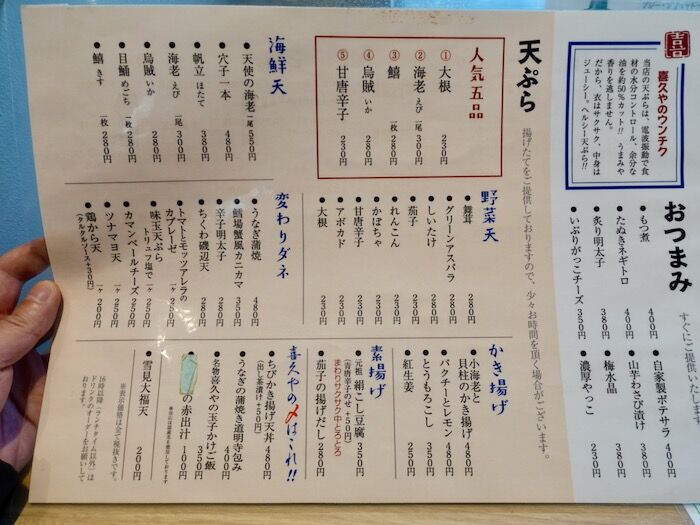 喜
喜久やのウンチク
当店の天ぷらは、電波振動で食
材の水分コントロール、余分な
油を約50%カット!! うまみや
香りを逃しません。
だから、衣はサクサク、中身は
ジューシー。ヘルシー天ぷら!!
おつまみ
すぐにご提供いたします
もつ煮 400円
たぬきネギトロ 400円
炙り明太子 380円
いぶりがっこチーズ 350円
自家製ポテサラ 400円
山芋わさび漬け 380円
梅水晶 380円
濃厚やっこ 230円
天ぷら
揚げたてをご提供しておりますので、少々お時間を頂く場合がございます。
人気五品
① 大根 230円
② 海老 えび 一尾 300円
③ 鱚 一枚 280円
④ 烏賊 いか 280円
⑤ 甘唐辛子 230円
海鮮天
天使の海老 一尾 550円
穴子一本 480円
帆立 ほたて 380円
海老 えび 一尾 300円
烏賊 いか 280円
目鯒 めごち 一枚 280円
鱚 きす 一枚 280円
野菜天
舞茸 280円
グリーンアスパラ 280円
しいたけ 280円
茄子 230円
れんこん 230円
かぼちゃ 230円
甘唐辛子 230円
アボカド 230円
大根 230円
変わりダネ
うなぎ蒲焼 480円
鱈場蟹風カニカマ 350円
辛子明太子 280円
ちくわ磯辺天 280円
トマトとモッツアレラの
カプレーゼ 一ヶ 200円
味玉天ぷら
トリュフ塩で 250円
カマンベールチーズ 250円
ツナマヨ天 一ヶ 200円
鶏から天 一ヶ 200円
(タルタルソース+30円)
かき揚げ
小海老と
貝柱のかき揚げ 480円
パクチーとレモン 480円
とうもろこし 450円
紅生姜 250円
素揚げ
元祖 絹こし豆腐 350円
(青唐辛子のせ+50円)
まわりサクサク中とろとろ
茄子の揚げだし 280円
喜久やの〆はこれ!!
ちびかき揚げ天丼 480円
(出し茶漬け+50円)
うなぎの蒲焼き道明寺包み 400円
名物喜久やの玉子かけご飯 350円
の赤出汁 100円
雪見大福天 200円
※表示価格は全て税抜きです。
16時以降(ランチタイム以外)は
ドリンクのオーダーをお願いして
おります。